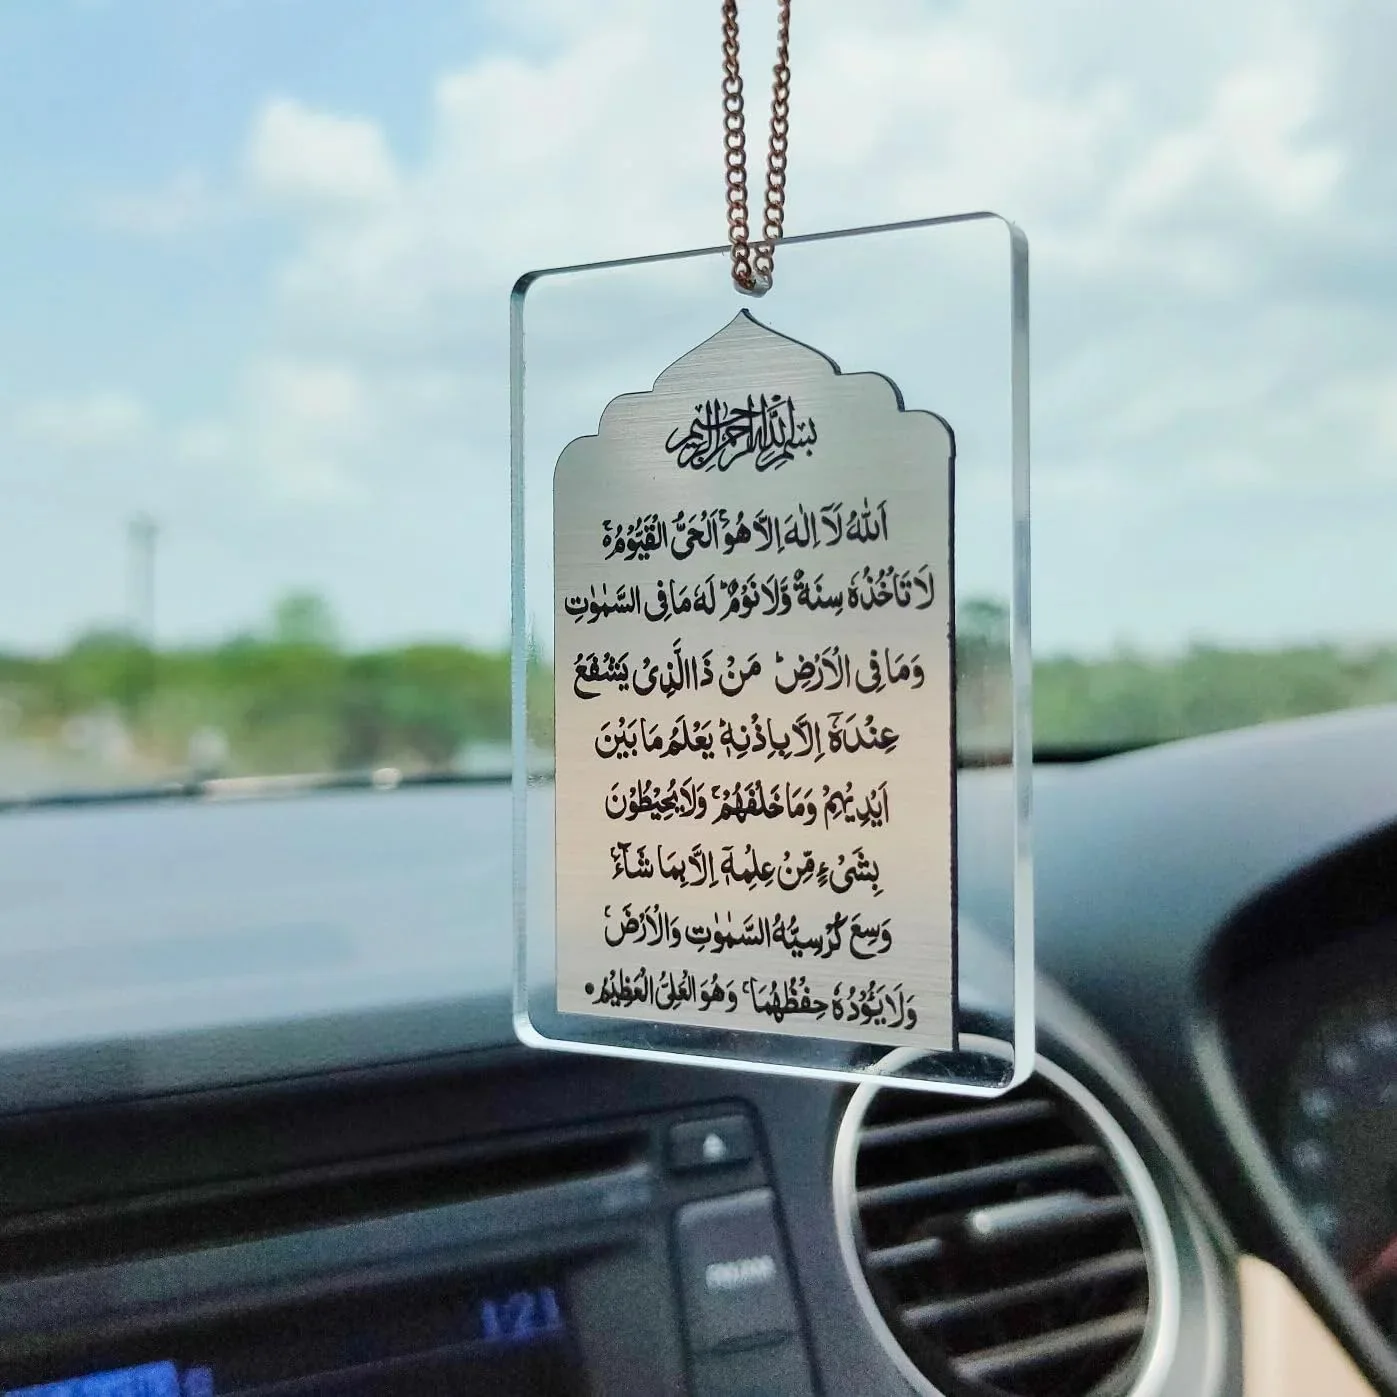 بسم الله الرحمن الرحيم
اَللّٰهُ لَاۤ اِلٰهَ اِلَّا هُوَۚ اَلْحَیُّ الْقَیُّوْمُ۬ۚ
لَا تَاْخُذُهٗ سِنَةٌ وَّلَا نَوْمٌؕ لَهٗ مَا فِی السَّمٰوٰتِ
وَمَا فِی الْاَرْضِؕ مَنْ ذَا الَّذِیْ یَشْفَعُ
عِنْدَهٗۤ اِلَّا بِاِذْنِهٖؕ یَعْلَمُ مَا بَیْنَ
اَیْدِیْهِمْ وَمَا خَلْفَهُمْۚ وَلَا یُحِیْطُوْنَ
بِشَیْءٍ مِّنْ عِلْمِهٖۤ اِلَّا بِمَا شَآءَۚ
وَسِعَ كُرْسِیُّهُ السَّمٰوٰتِ وَالْاَرْضَۚ
وَلَا یَـُٔوْدُهٗ حِفْظُهُمَاۚ وَهُوَ الْعَلِیُّ الْعَظِیْمُ
1:21